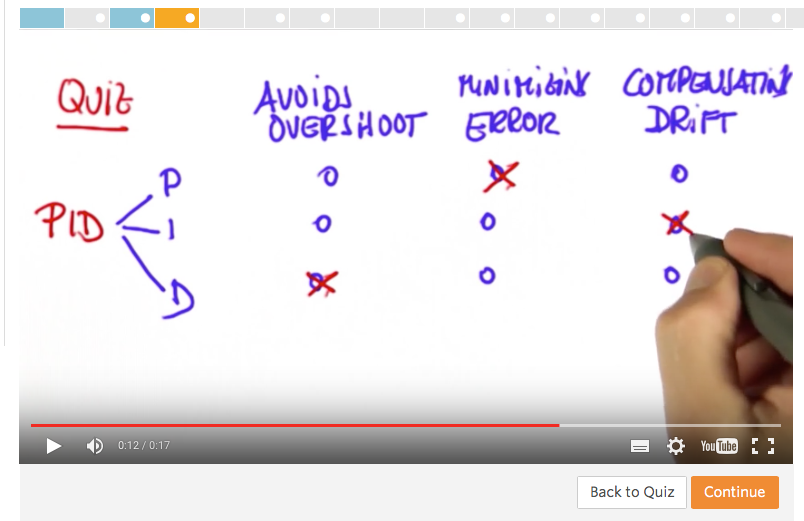 QUIZ
AVOIDS
OVERSHOOT
MINIMIZING
ERROR
COMPENSATING
DRIFT
PID
P
I
D
0:12 / 0:17
YouTube
Back to Quiz
Continue